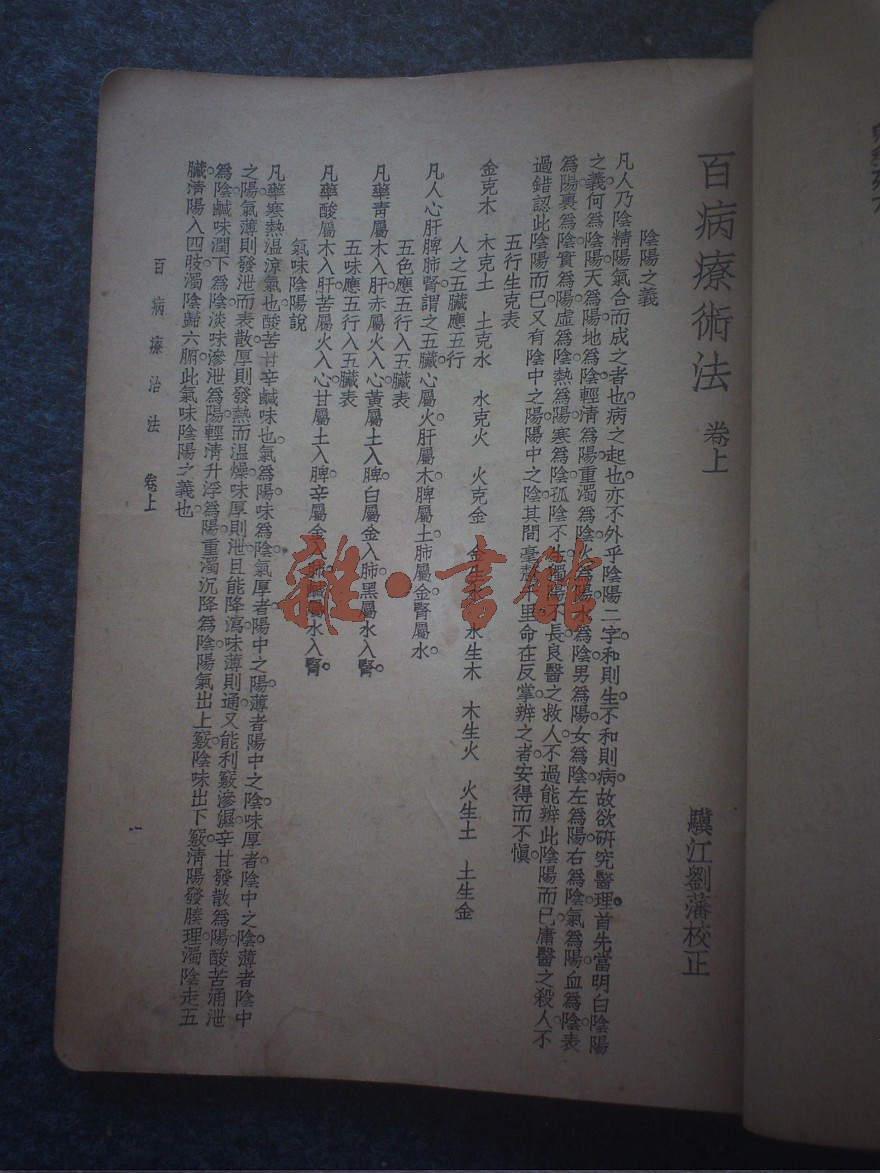 百病療術法 卷上
驥江劉藩校正
陰陽之義
凡人乃陰精陽氣合而成之者也。病之起也。亦不外乎陰陽二字。和則生。不和則病。故欲研究醫理。首先當明白陰陽
之義。何爲陰陽。天爲陽。地爲陰。輕清爲陽。重濁爲陰。火爲陽。水爲陰。男爲陽。女爲陰。左爲陽。右爲陰。氣爲陽。血爲陰。表
爲陽。裏爲陰。實爲陽。虛爲陰。熱爲陽。寒爲陰。孤陰不生。獨陽不長。良醫之救人。不過能辨此陰陽而已。庸醫之殺人。不
過錯認此陰陽而已。又有陰中之陽。陽中之陰。其間毫釐千里。命在反掌。辨之者安得而不愼。
五行生克表
金克木 木克土 土克水 水克火 火克金 金生水 水生木 木生火 火生土 土生金
人之五臟應五行
凡人心肝脾肺腎。謂之五臟。心屬火。肝屬木。脾屬土。肺屬金。腎屬水。
五色應五行入五臟表
凡藥靑屬木入肝。赤屬火入心。黃屬土入脾。白屬金入肺。黑屬水入腎。
五味應五行入五臟表
凡藥酸屬木入肝。苦屬火入心。甘屬土入脾。辛屬金入肺。鹹屬水入腎。
氣味陰陽說
凡藥寒熱溫涼氣也。酸苦甘辛鹹味也。氣爲陽。味爲陰。氣厚者陽中之陽。薄者陽中之陰。味厚者陰中之陰。薄者陰中
之陽。氣薄則發泄而表散。厚則發熱而溫燥。味厚則泄且能降瀉。味薄則通又能利竅滲濕。辛甘發散爲陽。酸苦涌泄
爲陰。鹹味潤下爲陰。淡味滲泄爲陽。輕清升浮爲陽。重濁沉降爲陰。陽氣出上竅。陰味出下竅。淸陽發腠理。濁陰走五
臟。淸陽入四肢。濁陰歸六腑。此氣味陰陽之義也
百病療治法 卷上
一
雜·書館